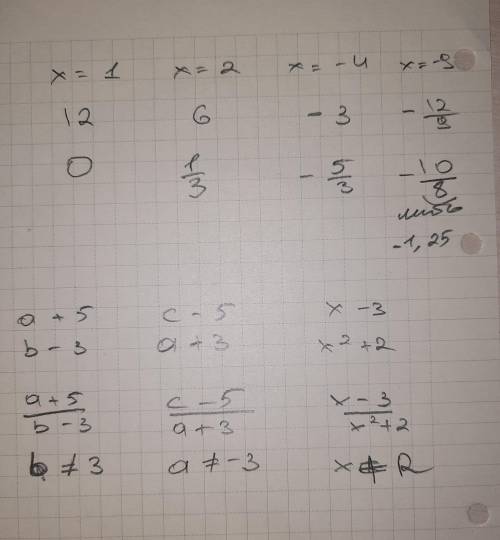 x = 1 x = 2 x = -4 x = -9
12 6 -3 -12/9
0 1/3 -5/3 -10/8
либо
-1,25
a + 5 c - 5 x - 3
b - 3 a + 3 x² + 2
(a + 5)/(b - 3) (c - 5)/(a + 3) (x - 3)/(x² + 2)
b ≠ 3 a ≠ -3 x ∈ R